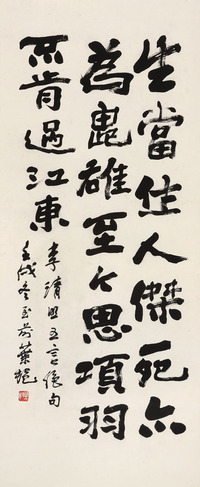 生當作人傑死亦
為鬼雄至今思項羽
不肯過江東
李清照五言絕句
壬戌冬至前葉選